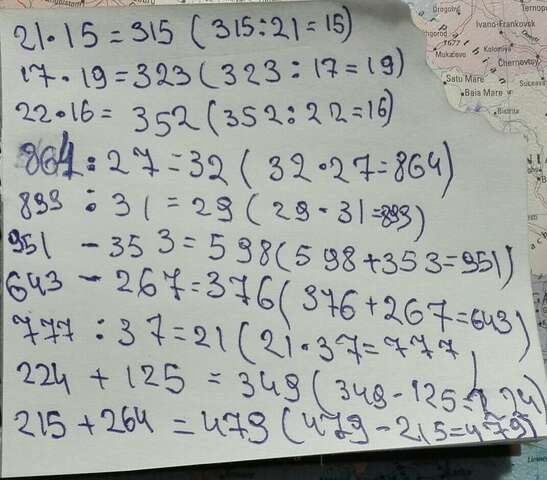 21·15=315 (315:21=15)
17·19=323 (323:17=19)
22·16= 352 (352:22=16)
864:27=32 (32·27=864)
899:31=29 (29·31=899)
951 -353=598 (598+353=951)
643 -267=376 (376+267=643)
777:37=21 (21·37=777)
224+125 =349 (349-125=224)
215+264 =479 (479-215=479)
Drogobyc
Ivano-Frankovsk
Kolomyia
Mukačevo
Chernovtsy
Satu Mare
Baia Mare
Suceava
Bistrita
1677